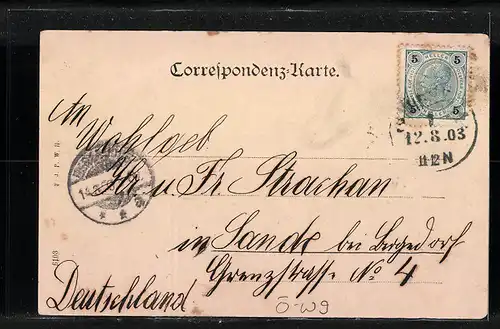 Correspondenz-Karte.
5 HELLER 5
5 5
12.8.03
An
Wohlgeb
Hr u. Fr Strachan
in Sande bei Bergedorf
Grenzstrasse No 4
Deutschland
F. J. P. W. N.
6103
Ö-W9